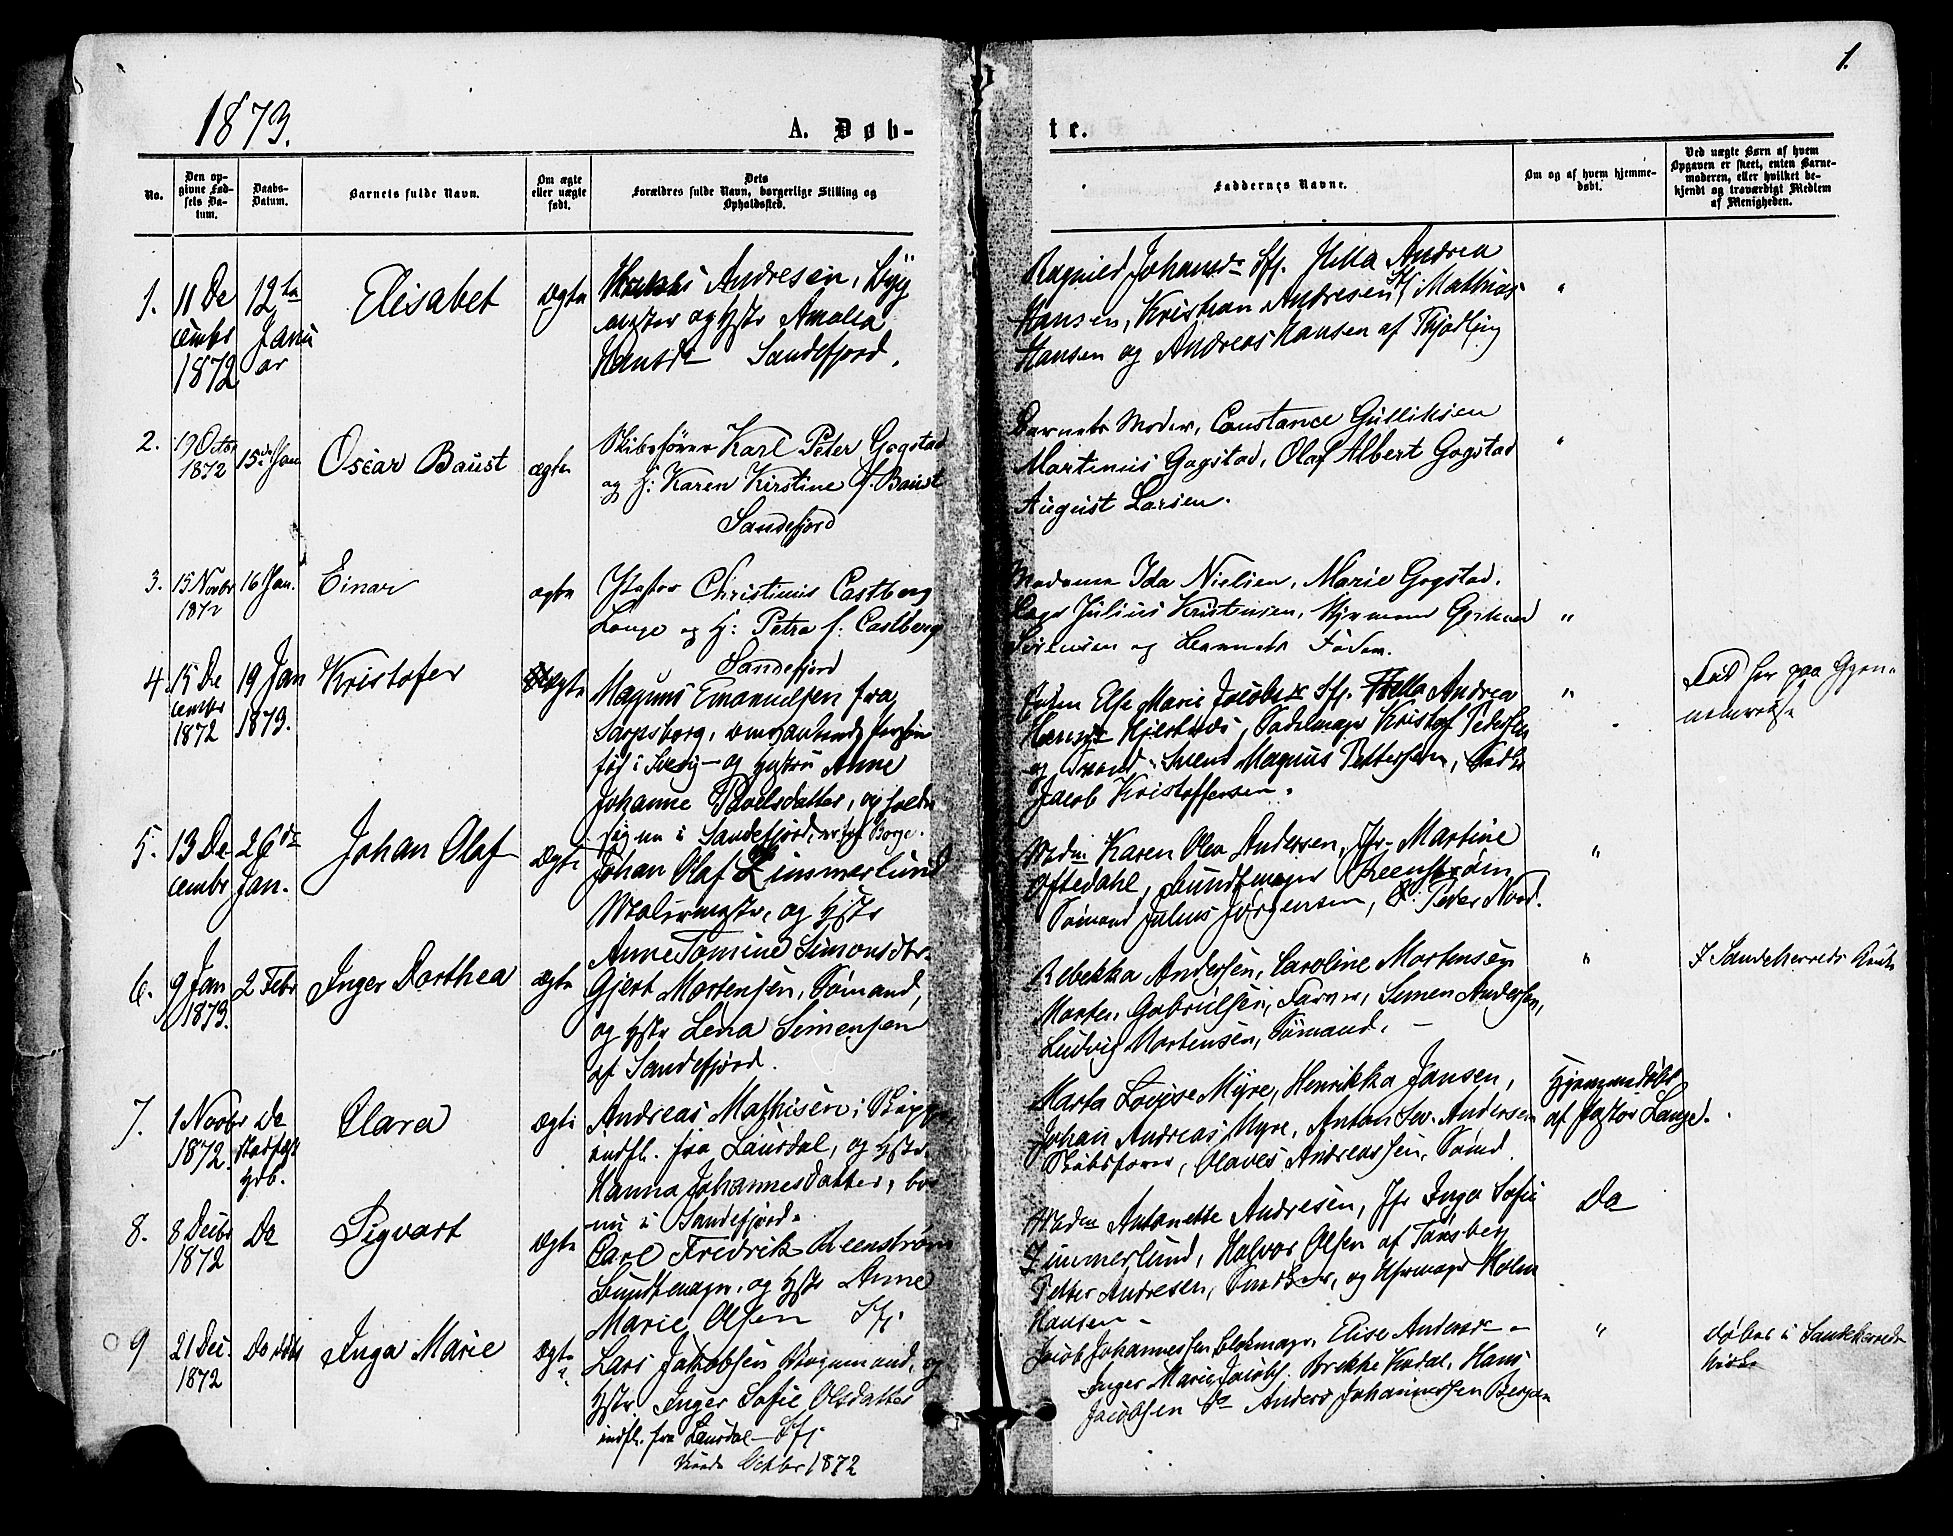 1.
1873.
A. Døb-
te.
No.
Den op-
givne Fød-
sels Da-
tum.
Daabs-
Datum.
Barnets fulde Navn.
Om ægte
eller uægte
født.
Dets
Forældres fulde Navn, borgerlige Stilling og
Opholdssted.
Faddernes Navne.
Om og af hvem hjemme-
døbt.
Ved uægte Børn af hvem
Opgaven er skeet, enten Barne-
moderen, eller hvilket be-
kjendt og troværdigt Medlem
af Menigheden.
1.
11 De
cembr
1872
12te
Janu
ar
Elisabet
Ægte
Andresen, Byg
mester og Hstr Amalia
Hansdt Sandefjord.
Ragnild Johansdr Sfj. Hella Andrea
Hansen, Kristian Andresen Sfj Mathias
Hansen og Andreas Hansen af Thjodling
"
2.
19 Octbr
1872
15de Jan
Oscar Baust
ægte
Skibsfører Karl Peter Gogstad
og H: Karen Kirstine f. Baust
Sandefjord
Barnets Moder, Constance Gulliksen
Martinius Gogstad, Olaf Albert Gogstad
August Larsen.
"
3.
15 Novbr
1872
16 Jan.
Einar
ægte
Christinus Castberg
Lange og H: Petra f: Castberg
Sandefjord
Madame Ida Nielsen, Marie Gogstad.
Julius Kristensen,
Sørensen og Barnets Fader.
"
4.
15 De
cembr
1872
19 Jan
1873.
Kristofer
Ægte
Magnus Emanuelsen fra
Sarpsborg,
fød i Sverig - og Hustru Anne
Johanne Povelsdatter, opholder
sig nu i Sandefjord,
Enken Else Marie Jacobsdr Sfj. Hella Andrea
Hansdr Hjertnæs, Sadelmager Kristof Pedersen
og Svend Magnus Pettersen,
Jacob Kristoffersen.
"
Fød her paa Gjen-
nemreise
5.
13 De
cembr
26de
Jan.
Johan Olaf
Ægte
Johan Olaf Zimmerlund
Malermester, og Hstr
Anne Tomine Simonsdtr
Madm Karen Olea Andersen, Jfr. Martine
Oftedahl, Bundtmager Reenstrøm
Sømand Julius Jørgensen, & Peder Nord.
"
6.
9 Jan
1873.
2 Febr
Inger Dorthea
ægte
Gjert Mortensen, Sømand,
og Hstr Lena Simensen
af Sandefjord.
Rebekka Andersen, Caroline Mortensen
Morten Gabrielsen, Farver, Simen Andersen,
Ludvig Mortensen, Sømand. -
"
I Sandeherreds Kirke
7.
1 Novbr
1872.
Da
stadfæst
Hdb.
Clara
Ægte
Andreas Mathisen, Skipper
indfl. fra Laurdal, og Hstr
Hanna Johannesdatter, bor
nu i Sandefjord.
Marta Lovise Myre, Henrikka Jansen,
Johan Andreas Myre, Anton Sev. Andersen
Skibsfører, Olaves Andreassen, Sømd.
Hjemmedøbt
af Pastor Lange.
8.
8 Decbr
1872
Do
Sigvart
Ægte
Carl Fredrik Reenstrøm
Bundtmager, og Hstr Anne
Marie Olsen Sfj
Madm Antonette Andresen, Jfr Inga Sofie
Zimmerlund, Halvor Olsen af Tønsberg
Petter Andresen, Snedker, og Uhrmager Holm
Hansen -
Do
9
21 Dec.
1872
Do døbt
Inga Marie
Ægte
Lars Jakobsen Brygmand, og
Hstr Inger Sofie Olsdatter
indfl. fra Laurdal - Sfj.
Octbr 1872
Jacob Johannessen Blokmager, Elise
Inger Marie Jacobs. Brekke Kodal, Hans
Jacobsen Do Anders Johannessen Bergan
"
døbt i Sandeherreds
Kirke